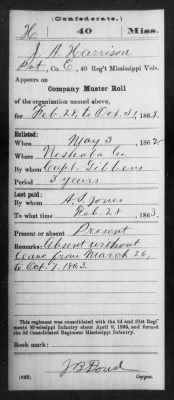 (Confederate.)
H 40 Miss.
J. A. Harrison
Pvt, Co. E, 40 Reg't Mississippi Vols.
Appears on
Company Muster Roll
of the organization named above,
for Feb. 28 to Oct 31, 1863.
Enlisted:
When May 3, 1862
Where Neshoba Co.
By whom Capt. Gibbens
Period 3 years
Last paid:
By whom A. S. Jones
To what time Feb. 28, 1863.
Present or absent
Remarks: Absent without
leave from March 26,
to Oct. 7. 1863.
This regiment was consolidated with the 3d and 31st Regi-
ments Mississippi Infantry about April 9, 1865, and formed
the 3d Consolidated Regiment Mississippi Infantry.
Book mark:
(642)
Copyist.